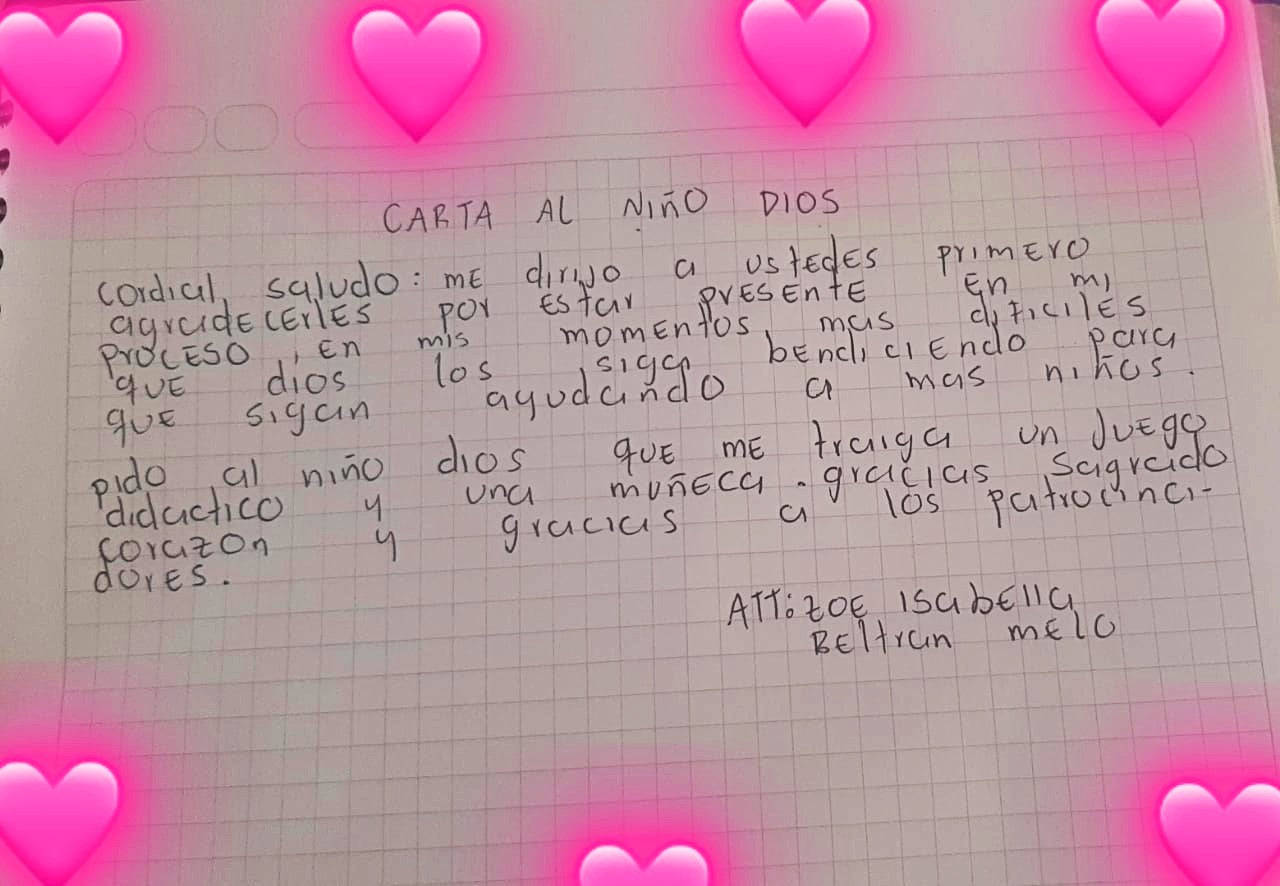 CARTA AL NIÑO DIOS
cordial saludo: me dirijo a ustedes primero
agradecerles por estar presente en mi
proceso, en mis momentos mas dificiles
que dios los siga bendiciendo para
que sigan ayudando a mas niños.
pido al niño dios que me traiga un juego
didactico y una muñeca. gracias sagrado
corazon y gracias a los patrocina-
dores.
ATT: zoe isabella
Beltran melo